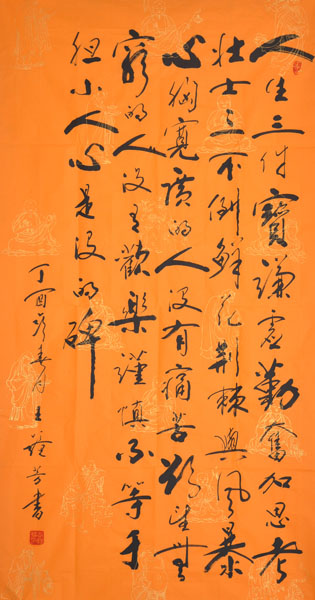 人生三件寶謙虛勤奮加思考
壯士三不倒鮮花荊棘與風暴
心胸寬廣的人没有痛苦欲望無
窮的人没有歡樂謹慎不等于
胆小人心是没的碑
丁酉岁春月王芳書